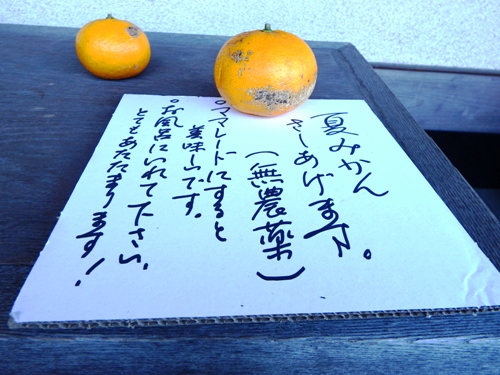 夏みかん
さしあげます。
(無農薬)
○ママレードにすると
美味しいです。
○お風呂にいれて下さい、
とてもあたたまります!